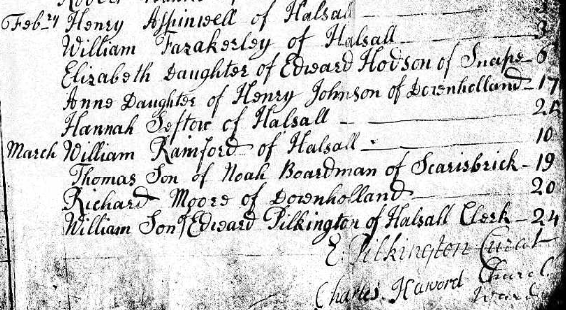 Feb:ry Henry Aspinwell of Halsall
William Fazakerley of Halsall 3
Elizabeth Daughter of Edward Hodson of Snape 6
Anne Daughter of Henry Johnson of Downholland 17
Hannah Seftow of Halsall
March William Rainford of Halsall 10
Thomas Son of Noah Boardman of Scarisbrick 19
Richard Moore of Downholland 20
William Son of Edward Pilkington of Halsall Clerk 24
E. Pilkington Curat
Charles Haword Church
Ward